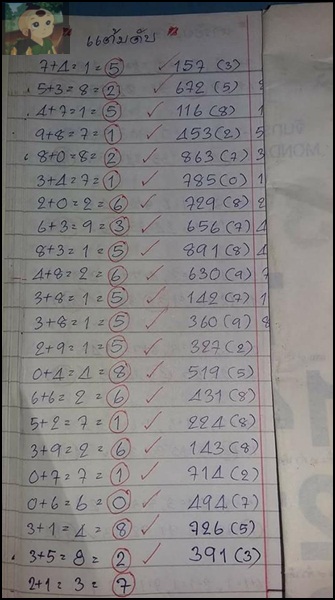 " แต้มดับ "
7+4=1=5 ✓ 157 (3)
5+3=8=2 ✓ 672 (5)
4+7=1=5 ✓ 116 (8) 1
9+8=7=1 ✓ 453 (2) 5
8+0=8=2 ✓ 863 (7) 3
3+4=7=1 ✓ 785 (0) 1
2+0=2=6 ✓ 729 (8) 2
6+3=9=3 ✓ 656 (7) 4
8+3=1=5 ✓ 891 (8) 4
4+8=2=6 ✓ 630 (9)
3+8=1=5 ✓ 142 (7) 1
3+8=1=5 ✓ 360 (9) 8
2+9=1=5 ✓ 327 (2)
0+4=4=8 ✓ 519 (5)
6+6=2=6 ✓ 431 (8)
5+2=7=1 ✓ 224 (8)
3+9=2=6 ✓ 143 (8)
0+7=7=1 ✓ 714 (2)
0+6=6=0 ✓ 494 (7)
3+1=4=8 ✓ 726 (5)
3+5=8=2 ✓ 391 (3)
2+1=3=7